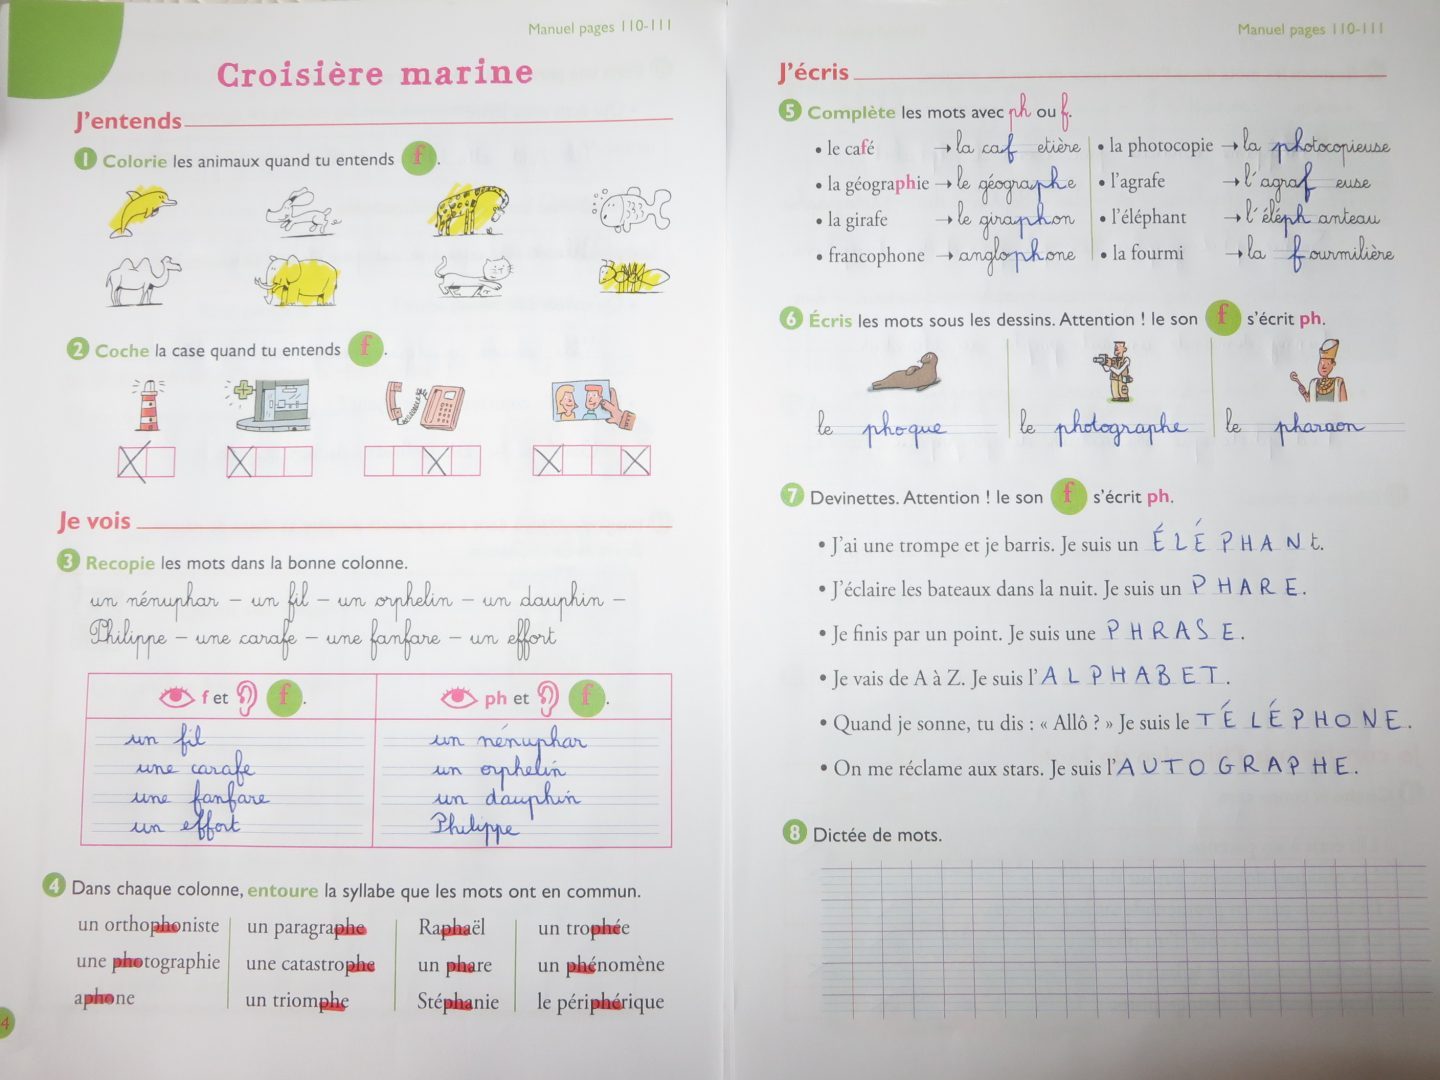 Manuel pages 110-111
Croisière marine
J'entends
1 Colorie les animaux quand tu entends f.
2 Coche la case quand tu entends f.
Je vois
3 Recopie les mots dans la bonne colonne.
un nénuphar – un fil – un orphelin – un dauphin –
Philippe – une carafe – une fanfare – un effort
f et f.
ph et f.
un fil
une carafe
une fanfare
un effort
un nénuphar
un orphelin
un dauphin
Philippe
4 Dans chaque colonne, entoure la syllabe que les mots ont en commun.
un orthophoniste
une photographie
aphone
un paragraphe
une catastrophe
un triomphe
Raphaël
un phare
Stéphanie
un trophée
un phénomène
le périphérique
4
Manuel pages 110-111
J'écris
5 Complète les mots avec ph ou f.
• le café → la caf etière
• la géographie → le géographe
• la girafe → le giraphon
• francophone → anglophone
• la photocopie → la photocopieuse
• l'agrafe → l'agraf euse
• l'éléphant → l'éléph anteau
• la fourmi → la f ourmilière
6 Écris les mots sous les dessins. Attention ! le son f s'écrit ph.
le phoque
le photographe
le pharaon
7 Devinettes. Attention ! le son f s'écrit ph.
• J'ai une trompe et je barris. Je suis un ÉLÉPHANt.
• J'éclaire les bateaux dans la nuit. Je suis un PHARE.
• Je finis par un point. Je suis une PHRASE.
• Je vais de A à Z. Je suis l'ALPHABET.
• Quand je sonne, tu dis : « Allô ? » Je suis le TÉLÉPHONE.
• On me réclame aux stars. Je suis l'AUTOGRAPHE.
8 Dictée de mots.